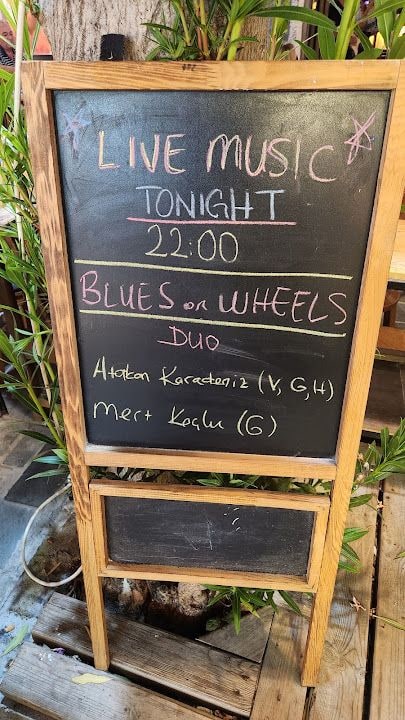 LIVE MUSIC
TONIGHT
22:00
BLUES on WHEELS
DUO
Atakan Karadeniz (V, G, H)
Mert Koglu (G)